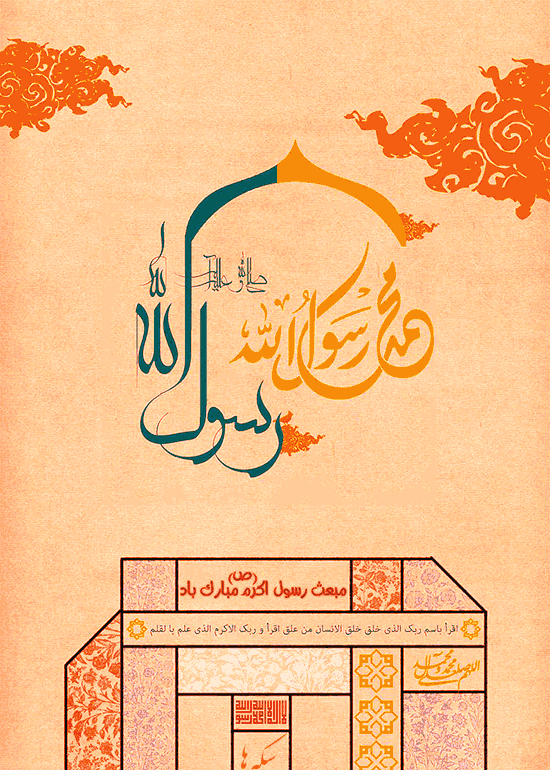 صلی الله علیه و آله
محمد رسول الله
رسول الله
مبعث رسول اکرم (ص) مبارک باد
اقرأ باسم ربک الذی خلق خلق الانسان من علق اقرأ و ربک الاکرم الذی علم با لقلم
اللهم صل علی محمد و آل محمد